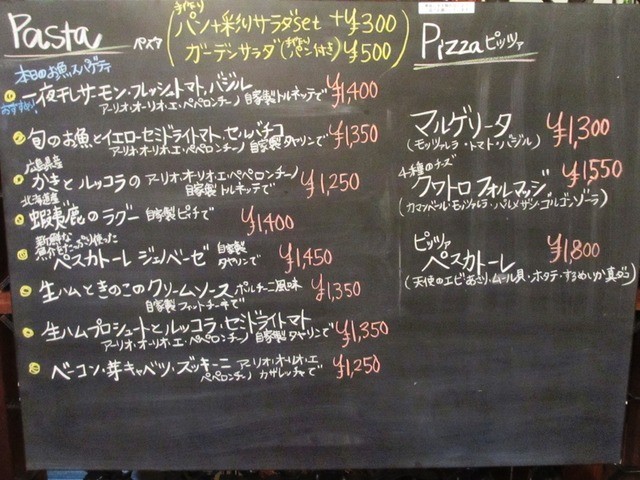 Pasta パスタ
手作り
パン+彩りサラダset +¥300
ガーデンサラダ(手作りパン付き) ¥500
本日のお魚スパゲティ
おすすめ!
一夜干しサーモン・フレッシュトマト、バジル
アーリオ・オーリオ・エ・ペペロンチーノ 自家製トルネッテで ¥1,400
旬のお魚とイエローセミドライトマト、セルバチコ
アーリオ・オーリオ・エ・ペペロンチーノ 自家製タヤリンで ¥1,350
広島県産
かきとルッコラの アーリオ・オーリオ・エ・ペペロンチーノ
自家製トルネッテで ¥1,250
北海道産
蝦夷鹿のラグー 自家製ピチで ¥1,400
新鮮な
魚介をたっぷり使った
ペスカトーレ ジェノベーゼ 自家製
タヤリンで ¥1,450
生ハムときのこのクリームソース ポルチーニ風味
自家製フィットチーネで ¥1,350
生ハムプロシュートとルッコラ・セミドライトマト
アーリオ・オーリオ・エ・ペペロンチーノ 自家製タヤリンで ¥1,350
ベーコン・芽キャベツ・ズッキーニ アーリオ・オーリオ・エ
ペペロンチーノ カザレッチャで ¥1,250
Pizza ピッツァ
マルゲリータ ¥1,300
(モッツァレラ・トマト・バジル)
4種のチーズ
クワトロ フォルマッジ ¥1,550
(カマンベール・モッツァレラ・パルメザン・ゴルゴンゾーラ)
ピッツァ
ペスカトーレ ¥1,800
(天使のエビ・あさり・ムール貝・ホタテ・するめいか・真ダコ)